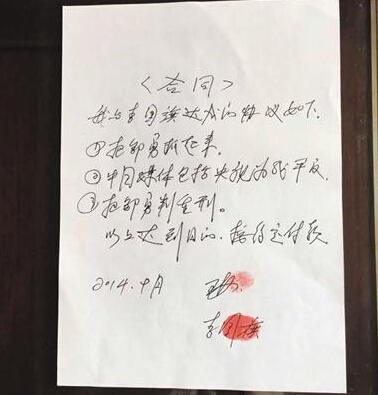 〈合同〉
我与李国旗达成的协议如下.
①把邹勇抓起来.
②中国媒体包括央视为我平反.
③把邹勇判重刑。
以上达到目的.按约定付款
2014.9月
王
李国旗